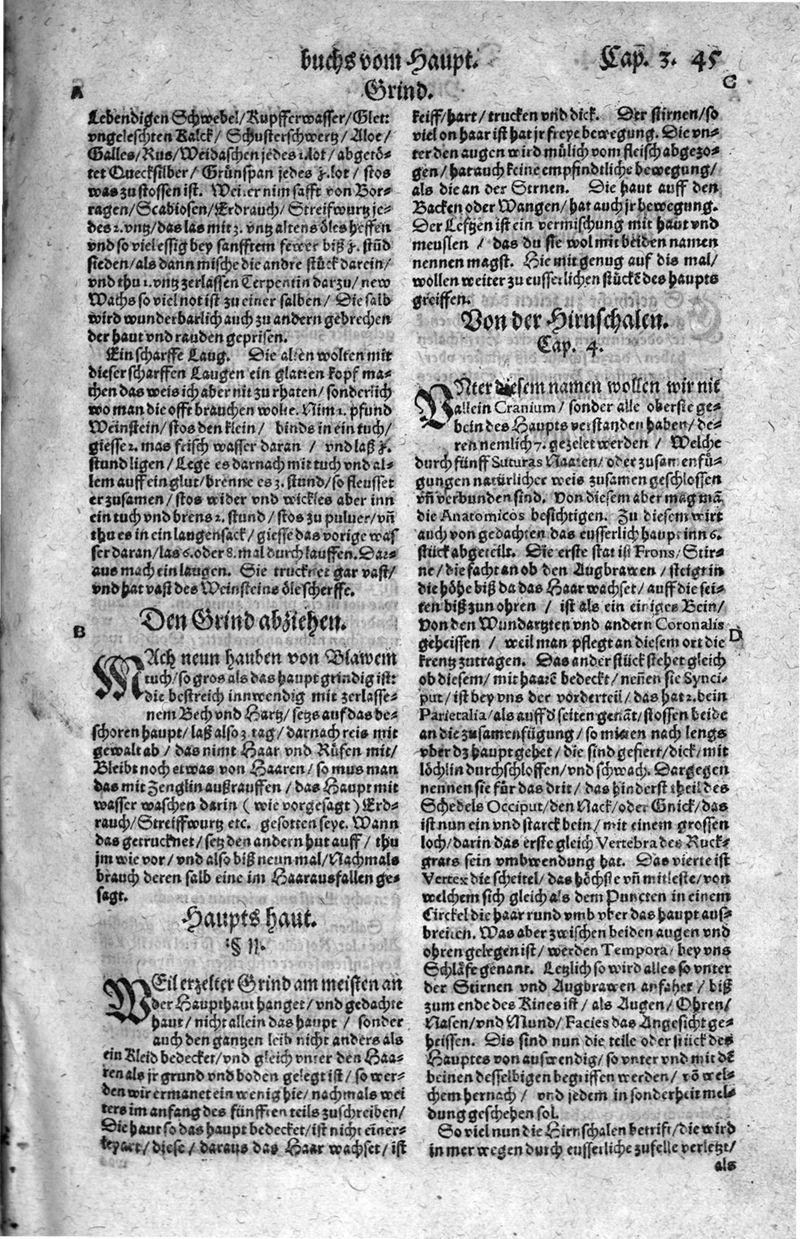 buchs vom Haupt. Cap. 3. 45
Grind.
A
Lebendigen Schwebel/Kupfferwasser/Glett
vngeleschten Kalck/ Schusterschwertz/ Aloe/
Galles/Rus/Weidaschen jedes 1.lot/ abgetö-
tet Quecksilber/ Grünspan jedes ʒ.lot/ stos
was zu stossen ist. Weiter nim safft von Bor-
ragen/Scabiosen/Erdrauch/Streifwurtz je-
des 2.vntz/das las mit 3. vntz altens öles heffen
vnd so viel essig bey sanfftem fewer biß ʒ. stüd
sieden/als dann mische die andre stück darein/
vnd thu 1.vntz zerlassen Terpentin darzu/new
Wachs so viel not ist zu einer salben/ Die salb
wird wunderbarlich auch zu andern gebrechen
der haut vnd rauden geprisen.
Ein scharffe Laug. Die alten wolten mit
dieser scharffen Laugen ein glatten kopf ma-
chen das weis ich aber nit zu rhaten/sonderlich
wo man die offt brauchen wolte. Nim 1. pfund
Weinstein/stos den klein/ binds in ein tuch/
giesse 2. mas frisch wasser daran / vnd laß ʒ.
stund ligen/Lege es darnach mit tuch vnd al-
lem auff ein glut/brenne es 3. stund/so fleusset
er zusamen/stos wider vnd wickles aber inn
ein tuch vnd brens 2. stund/stos zu puluer/vñ
thu es in ein laugensack/giesse das vorige was
ser daran/las 6.oder 8.mal durch lauffen. Dar-
aus mach ein laugen. Sie trucknet gar vast/
vnd hat vast des Weinsteins öle scherffe.
Den Grind abziehen.
B
MAch neun hauben von Blawem
tuch/so gros als das haupt grindig ist:
die bestreich innwendig mit zerlasse-
nem Bech vnd Hartz/setzs auf das be-
schoren haupt/laß also 3 tag/darnach reis mit
gewalt ab/das nimt Haar vnd Rüfen mit/
Bleibt noch etwas von Haaren/so mus man
das mit Zenglin außrauffen/das Haupt mit
wasser waschen darin (wie vorgesagt) Erd-
rauch/Streiffwurtz etc. gesotten seye. Wann
das getrucknet/setz den andern hut auff/ thu
jm wie vor/vnd also biß neun mal/Nachmals
brauch deren salb eine im Haarausfallen ge-
sagt.
Haupts haut.
§ II.
WEil erzelter Grind am meisten an
der Haupthaut hanget/vnd gedachte
haut/nicht allein das haupt / sonder
auch den gantzen leib nicht anders als
ein Kleid bedecket/vnd gleich vnter den Haa-
ren als jr grund vnd boden gelegt ist/so wer-
den wir ermanet ein wenig hie/nachmals wei
ters im anfang des fünfften teils zuschreiben/
Die haut so das haupt bedecket/ist nicht einer-
ley art/diese/daraus das Haar wachset/ist
C
keiff/hart/trucken vnd dick. Der stirnen/so
viel on haar ist hat jr freye bewegung. Die vn-
ter den augen wird mülich vom fleisch abgezo-
gen/hat auch keine empfindtliche bewegung/
als die an der Stirnen. Die haut auff den
Backen oder Wangen/hat auch jr bewegung.
Der Lefftzen ist ein vermischung mit haut vnd
meuslen / das du sie wol mit beiden namen
nennen magst. Hie mit genug auf dis mal/
wollen weiter zu eusserlichen stückē des haupts
greiffen.
Von der Hirnschalen.
Cap. 4.
VNter diesem namen wollen wir nit
allein Cranium/sonder alle oberste ge-
bein des Haupts verstanden haben/de-
ren nemlich 7. gezelet werden / Welche
durch fünff Suturas Naaten/oder zusamenfü-
gungen natürlicher weis zusamen geschlossen
vñ verbunden sind. Von diesem aber mag mā
die Anatomicos besichtigen. Zu diesem wirt
auch von gedachten das eusserlich haupt inn 6.
stück abgeteilt. Die erste stat ist Frons/Stir-
ne/die facht an ob den Augbrawen/steigt in
die höhe biß da das Haar wachset/auff die sei-
ten biß zun ohren / ist als ein einiges Bein/
Von den Wundartzten vnd andern Coronalis
D
geheissen / weil man pflegt an diesem ort die
krentz zutragen. Das ander stück stehet gleich
ob diesem/mit haarē bedeckt/nennē sie Synci-
put/ist bey vns der vörderteil/das hat 2.bein
Parietalia/als auff d seiten genāt/stossen beide
an die zusamenfügung/so mitten nach lengs
vber dz haupt gehet/die sind gefiert/dick/mit
löchlin durchschloffen/vnd schwach. Dargegen
nennen sie für das drit/das hinderst theil des
Schedels Occiput/den Nack/oder Gnick/das
ist nun ein vnd starck bein/mit einem grossen
loch/darin das erste gleich Vertebra des Ruck-
grats sein vmbwendung hat. Das vierte ist
Vertex die scheitel/das höchste vñ mitleste/von
welchem sich gleich als dem Puncten in einem
Circkel die haar rund vmb vber das haupt aus-
breiten. Was aber zwischen beiden augen vnd
ohren gelegen ist/werden Tempora/bey vns
Schläfe genant. Letzlich so wird alles so vnter
der Stirnen vnd Augbrawen anfahet / biß
zum ende des Kines ist/als Augen/Ohren/
Nasen/vnd Mund/Facies das Angesicht ge-
heissen. Dis sind nun die teile oder stück des
Hauptes von auswendig/so vnter vnd mit dē
beinen desselbigen begriffen werden/võ wel-
chem hernach / vnd jedem in sonderheit mel-
dung geschehen sol.
So viel nun die Hirnschalen betrift/die wird
in mer wegen durch eusserliche zufelle verletzt/
als